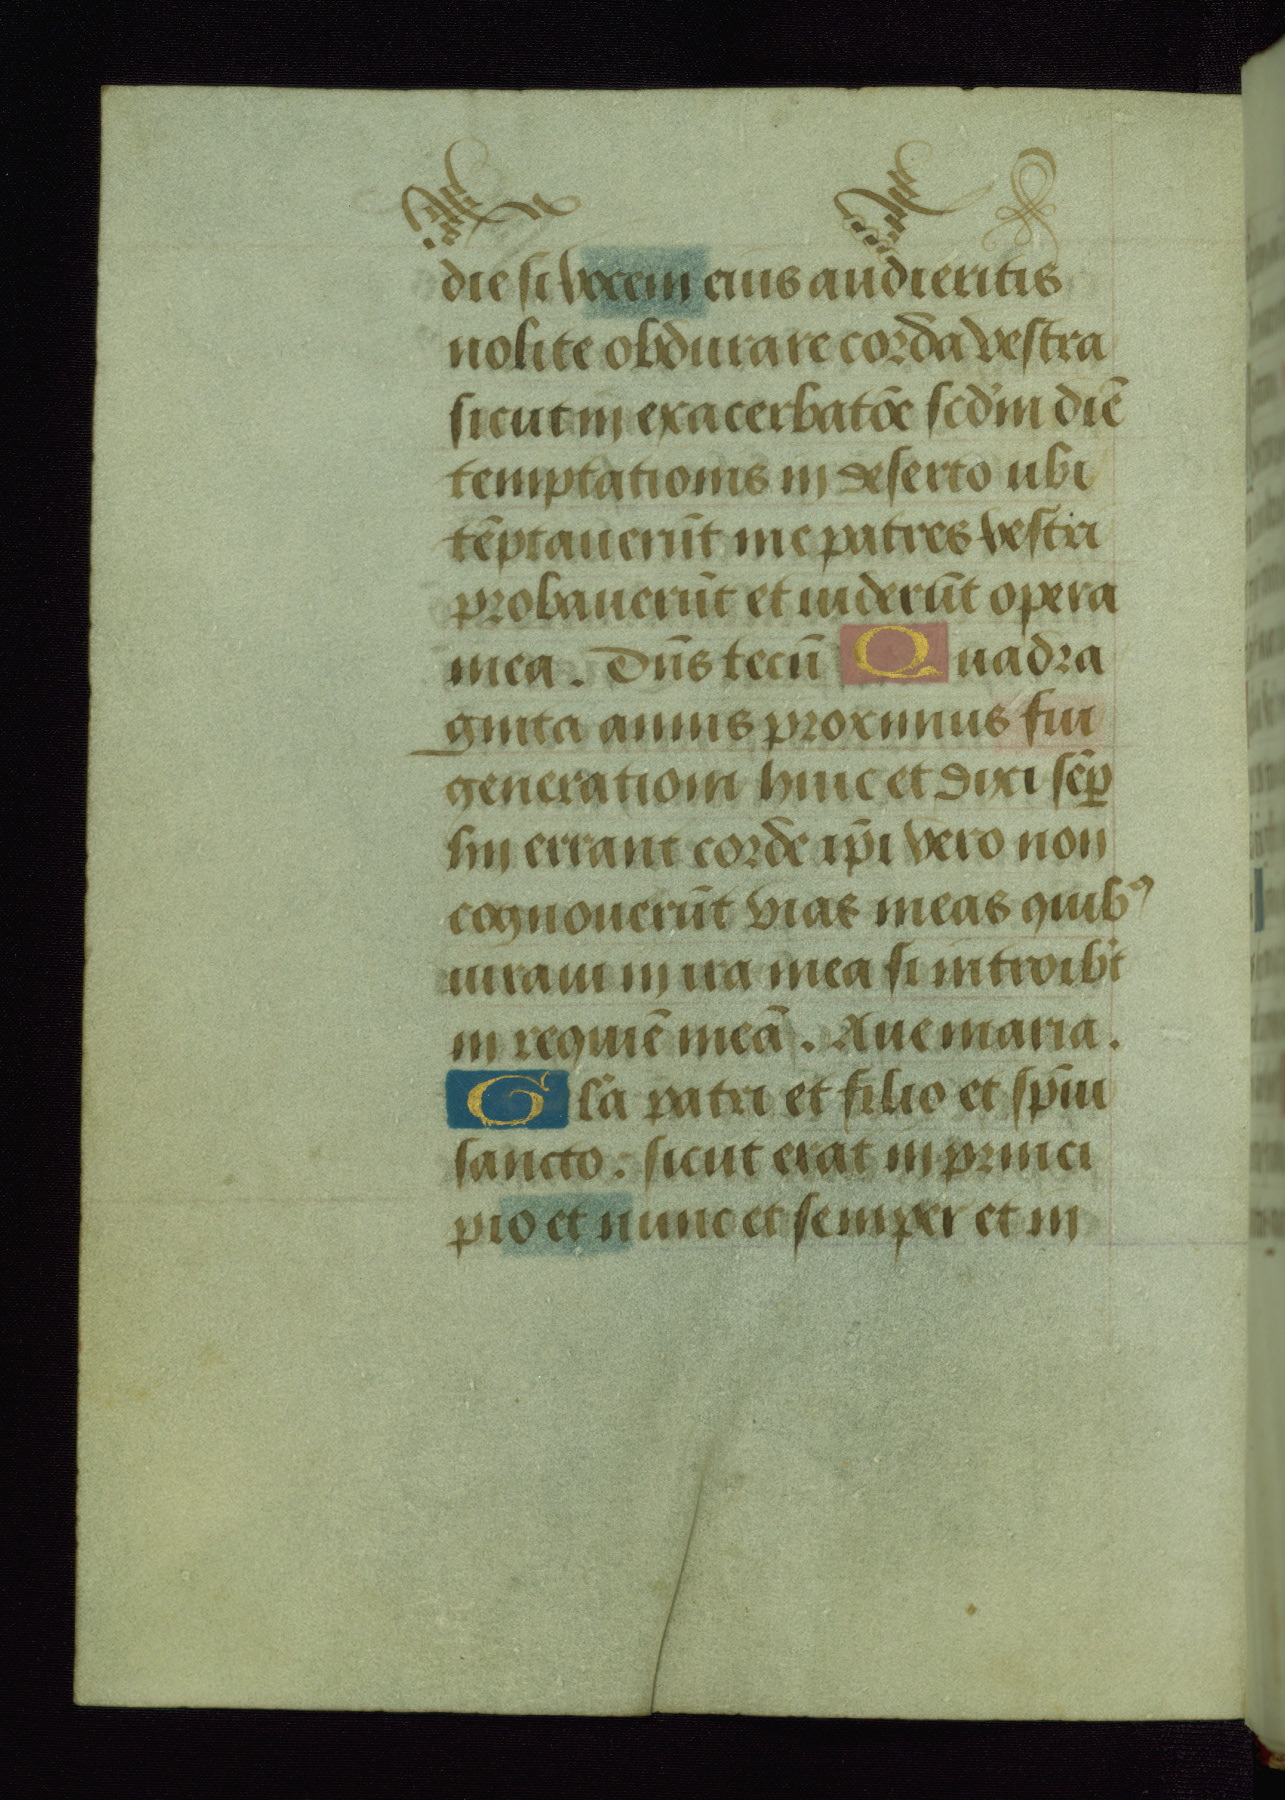 die si vocem eius audieritis
nolite obdurare corda vestra
sicut in exacerbatōe scd'm diē
temptationis in deserto ubi
tēptauerūt me patres vestri
probauerūt et uiderūt opera
mea. Dn̄s tecū Quadra
ginta annis proximus fui
generationi huic et dixi sēp
hii errant corde ip̄i vero non
cognouerūt vias meas quibꝰ
iuraui in ira mea si introib't
in requiē meā. Aue maria.
Gl'a patri et filio et sp̄ui
sancto. sicut erat in princi
pio et nunc et semper et in